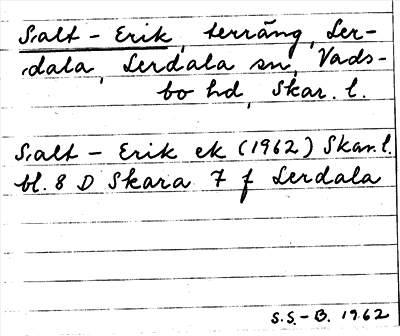 Salt-Erik, terräng, Ler-
dala, Lerdala sn, Vads-
bo hd, Skar. l.
Salt-Erik ek (1962) Skar. l.
bl. 8 D Skara 7 f Lerdala
S.S.-B. 1962